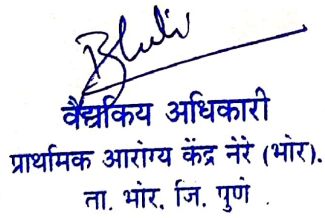 वैद्यकिय अधिकारी
प्राथमिक आरोग्य केंद्र नेरे (भोर).
ता. भोर, जि. पुणे